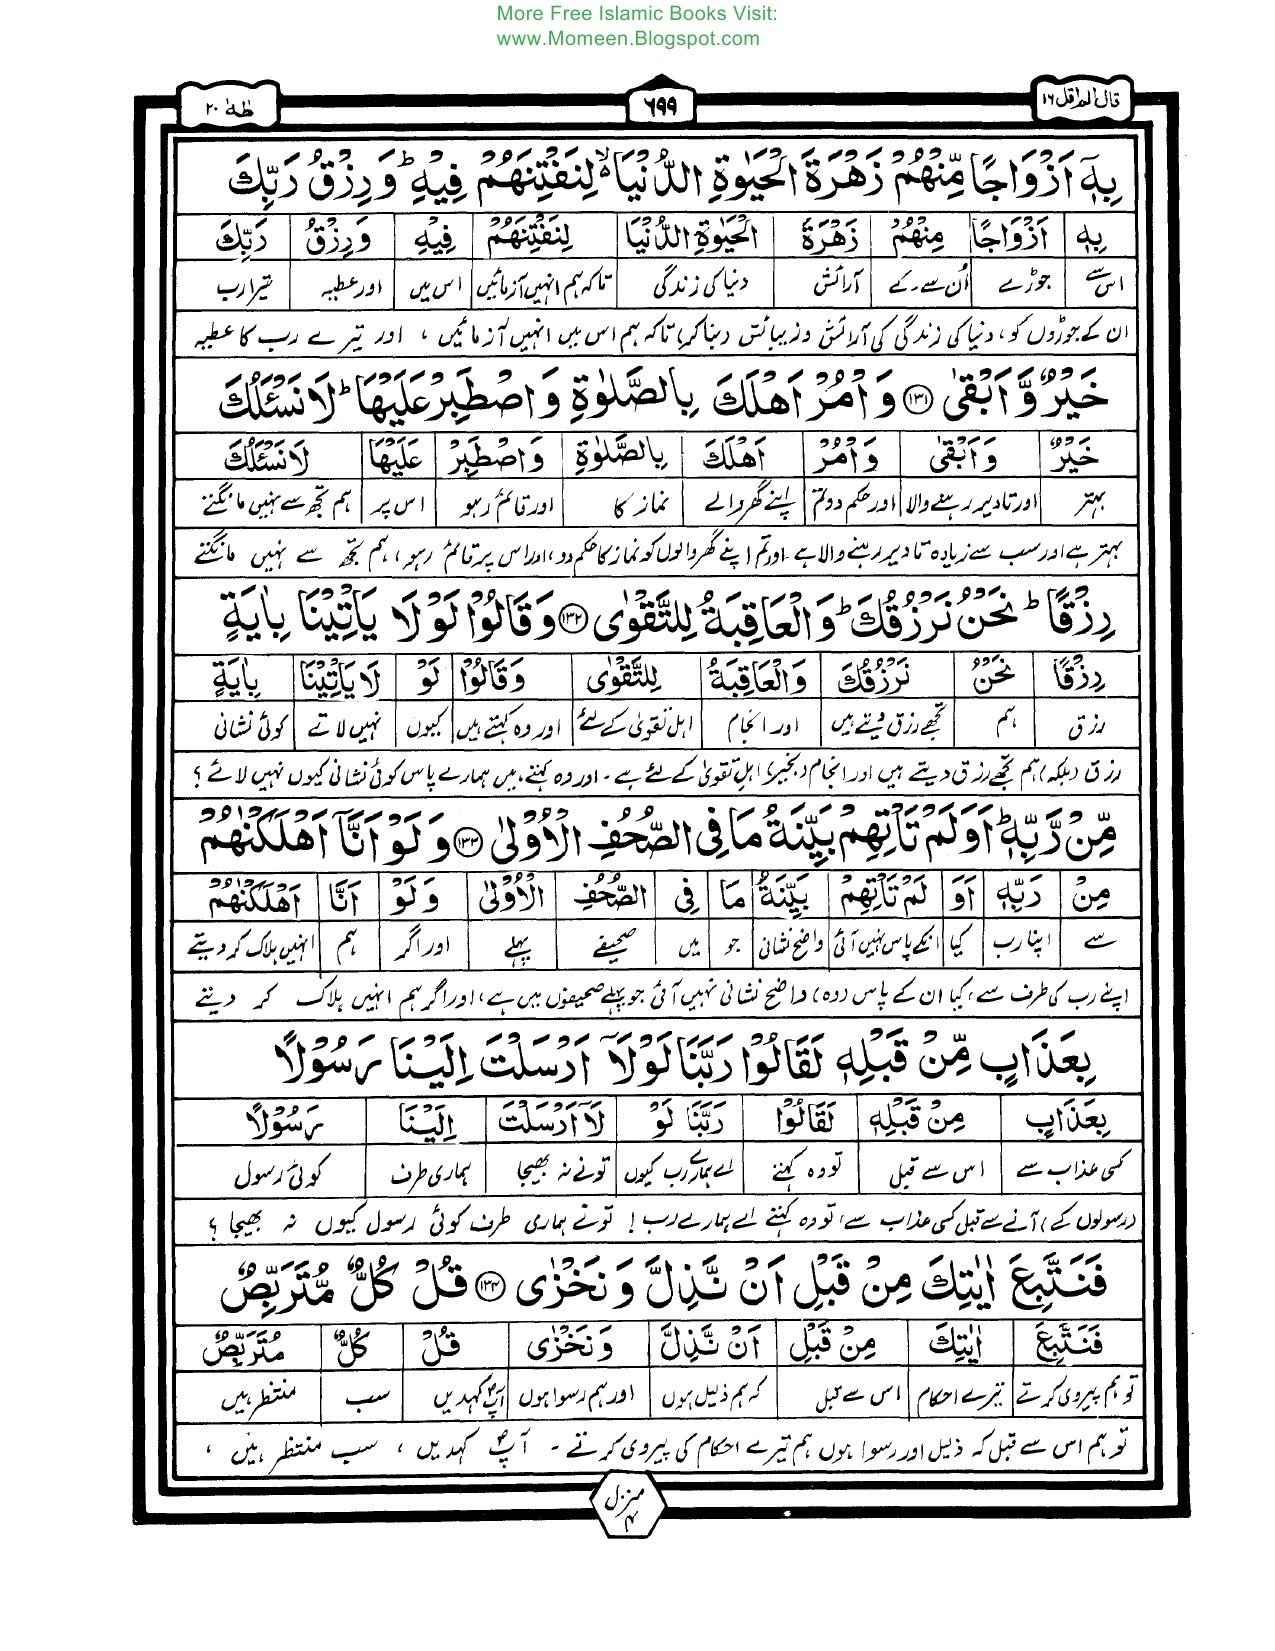 More Free Islamic Books Visit:
www.Momeen.Blogspot.com
قال الم اقل ۱۶
۶۹۹
طٰهٰ ۲۰
بِهٖۤ اَزْوَاجًا مِّنْهُمْ زَهْرَةَ الْحَيٰوةِ الدُّنْيَا ۙ لِنَفْتِنَهُمْ فِيْهِ ؕ وَرِزْقُ رَبِّكَ
بِهٖ اَزْوَاجًا مِنْهُمْ زَهْرَةَ الْحَيٰوةِ الدُّنْيَا لِنَفْتِنَهُمْ فِيْهِ وَرِزْقُ رَبِّكَ
اس سے جوڑے اُن سے۔ کے آرائش دنیا کی زندگی تاکہ ہم انہیں آزمائیں اس میں اور عطیہ تیرا رب
ان کے جوڑوں کو، دنیا کی زندگی کی آرائش و زیبائش دینا کر) تاکہ ہم اس میں انہیں آزمائیں ، اور تیرے رب کا عطیہ
خَيْرٌ وَّاَبْقٰى ۝۱۳۱ وَاْمُرْ اَهْلَكَ بِالصَّلٰوةِ وَاصْطَبِرْ عَلَيْهَا ؕ لَا نَسْـَٔلُكَ
خَيْرٌ وَاَبْقٰى وَاْمُرْ اَهْلَكَ بِالصَّلٰوةِ وَاصْطَبِرْ عَلَيْهَا لَا نَسْـَٔلُكَ
بہتر اور تادیر رہنے والا اور حکم دو تم اپنے گھر والے نماز کا اور قائم رہو اس پر ہم تجھ سے نہیں مانگتے
بہتر ہے اور سب سے زیادہ تادیر رہنے والا ہے ۔ اور تم اپنے گھر والوں کو نماز کا حکم دو، اور اس پر قائم رہو ، ہم تجھ سے نہیں مانگتے
رِزْقًا ؕ نَحْنُ نَرْزُقُكَ ؕ وَالْعَاقِبَةُ لِلتَّقْوٰى ۝۱۳۲ وَقَالُوْا لَوْلَا يَاْتِيْنَا بِاٰيَةٍ
رِزْقًا نَحْنُ نَرْزُقُكَ وَالْعَاقِبَةُ لِلتَّقْوٰى وَقَالُوْا لَوْ لَا يَاْتِيْنَا بِاٰيَةٍ
رزق ہم تجھے رزق دیتے ہیں اور انجام اہل تقویٰ کے لئے اور وہ کہتے ہیں کیوں نہیں لاتے کوئی نشانی
رزق (بلکہ) ہم تجھے رزق دیتے ہیں اور انجام (بخیر) اہلِ تقویٰ کے لئے ہے ۔ اور وہ کہتے ہیں ہمارے پاس کوئی نشانی کیوں نہیں لاتے ؟
مِّنْ رَّبِّهٖ ؕ اَوَلَمْ تَاْتِهِمْ بَيِّنَةُ مَا فِى الصُّحُفِ الْاُوْلٰى ۝۱۳۳ وَلَوْ اَنَّاۤ اَهْلَكْنٰهُمْ
مِنْ رَبِّهٖ اَوَ لَمْ تَاْتِهِمْ بَيِّنَةُ مَا فِى الصُّحُفِ الْاُوْلٰى وَلَوْ اَنَّا اَهْلَكْنٰهُمْ
سے اپنا رب کیا انکے پاس نہیں آئی واضح نشانی جو میں صحیفے پہلے اور اگر ہم انہیں ہلاک کر دیتے
اپنے رب کی طرف سے، کیا ان کے پاس (وہ) واضح نشانی نہیں آئی جو پہلے صحیفوں میں ہے، اور اگر ہم انہیں ہلاک کر دیتے
بِعَذَابٍ مِّنْ قَبْلِهٖ لَقَالُوْا رَبَّنَا لَوْلَاۤ اَرْسَلْتَ اِلَيْنَا رَسُوْلًا
بِعَذَابٍ مِنْ قَبْلِهٖ لَقَالُوْا رَبَّنَا لَوْ لَاۤ اَرْسَلْتَ اِلَيْنَا رَسُوْلًا
کسی عذاب سے اس سے قبل تو وہ کہتے اے ہمارے رب کیوں تونے نہ بھیجا ہماری طرف کوئی رسول
(رسولوں کے) آنے سے قبل کسی عذاب سے، تو وہ کہتے اے ہمارے رب ! تونے ہماری طرف کوئی رسول کیوں نہ بھیجا ؟
فَنَتَّبِعَ اٰيٰتِكَ مِنْ قَبْلِ اَنْ نَّذِلَّ وَنَخْزٰى ۝۱۳۴ قُلْ كُلٌّ مُّتَرَبِّصٌ
فَنَتَّبِعَ اٰيٰتِكَ مِنْ قَبْلِ اَنْ نَّذِلَّ وَنَخْزٰى قُلْ كُلٌّ مُتَرَبِّصٌ
تو ہم پیروی کرتے تیرے احکام اس سے قبل کہ ہم ذلیل ہوں اور ہم رسوا ہوں آپؐ کہدیں سب منتظر ہیں
تو ہم اس سے قبل کہ ذلیل اور رسوا ہوں ہم تیرے احکام کی پیروی کرتے ۔ آپؐ کہدیں ، سب منتظر ہیں ،
منزل ۴